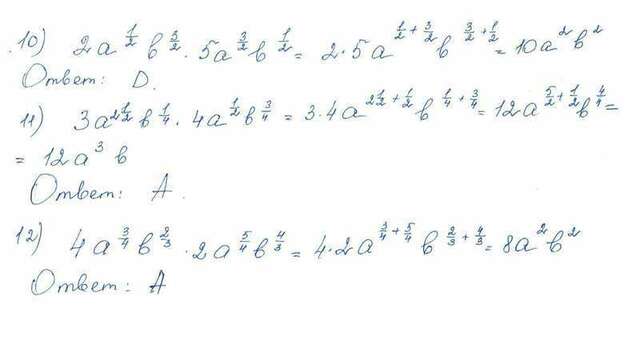 10) 2a^{1/2} b^{3/2} · 5a^{3/2} b^{1/2} = 2·5a^{1/2+3/2} b^{3/2+1/2} = 10a^2 b^2
Ответ: D.
11) 3a^{2 1/2} b^{1/4} · 4a^{1/2} b^{3/4} = 3·4a^{2 1/2+1/2} b^{1/4+3/4} = 12a^{5/2+1/2} b^{4/4} =
= 12a^3 b
Ответ: A.
12) 4a^{3/4} b^{2/3} · 2a^{5/4} b^{4/3} = 4·2a^{3/4+5/4} b^{2/3+4/3} = 8a^2 b^2
Ответ: A